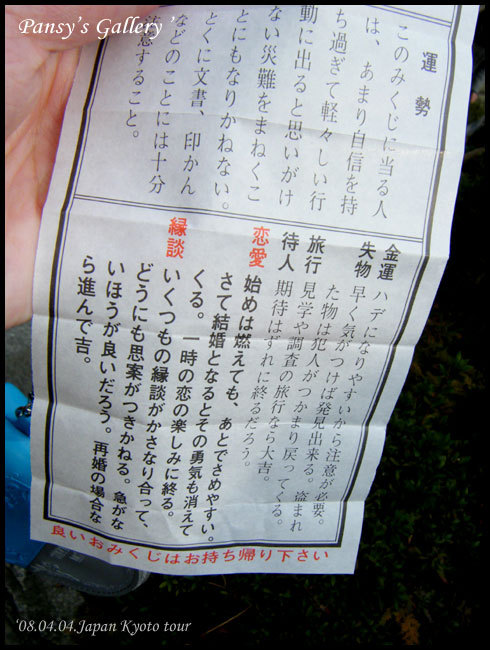 Pansy's Gallery '
運勢
このみくじに当る人
は、あまり自信を持
ち過ぎて軽々しい行
動に出ると思いがけ
ない災難をまねくこ
とにもなりかねない。
とくに文書、印かん
などのことには十分
注意すること。
金運 ハデになりやすいから注意が必要。
失物 早く気がつけば発見出来る。盗まれ
た物は犯人がつかまり戻ってくる。
旅行 見学や調査の旅行なら大吉。
待人 期待はずれに終るだろう。
恋愛 始めは燃えても、あとでさめやすい。
さて結婚となるとその勇気も消えて
くる。一時の恋の楽しみに終る。
縁談 いくつもの縁談がかさなり合って、
どうにも思案がつきかねる。急がな
いほうが良いだろう。再婚の場合な
ら進んで吉。
良いおみくじはお持ち帰り下さい
'08.04.04.Japan Kyoto tour